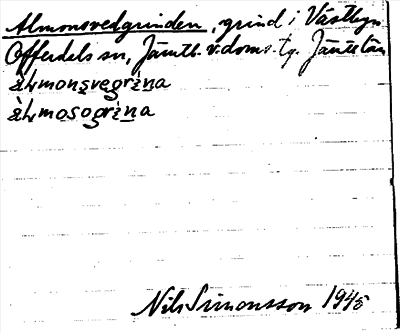 Almonsvedgrinden, grind i Västbyn
Offerdals sn, Jämtl. v. doms. tg. Jämtl. län
àLmonsvegrina
àLmosogrina
Nils Simonsson 1945